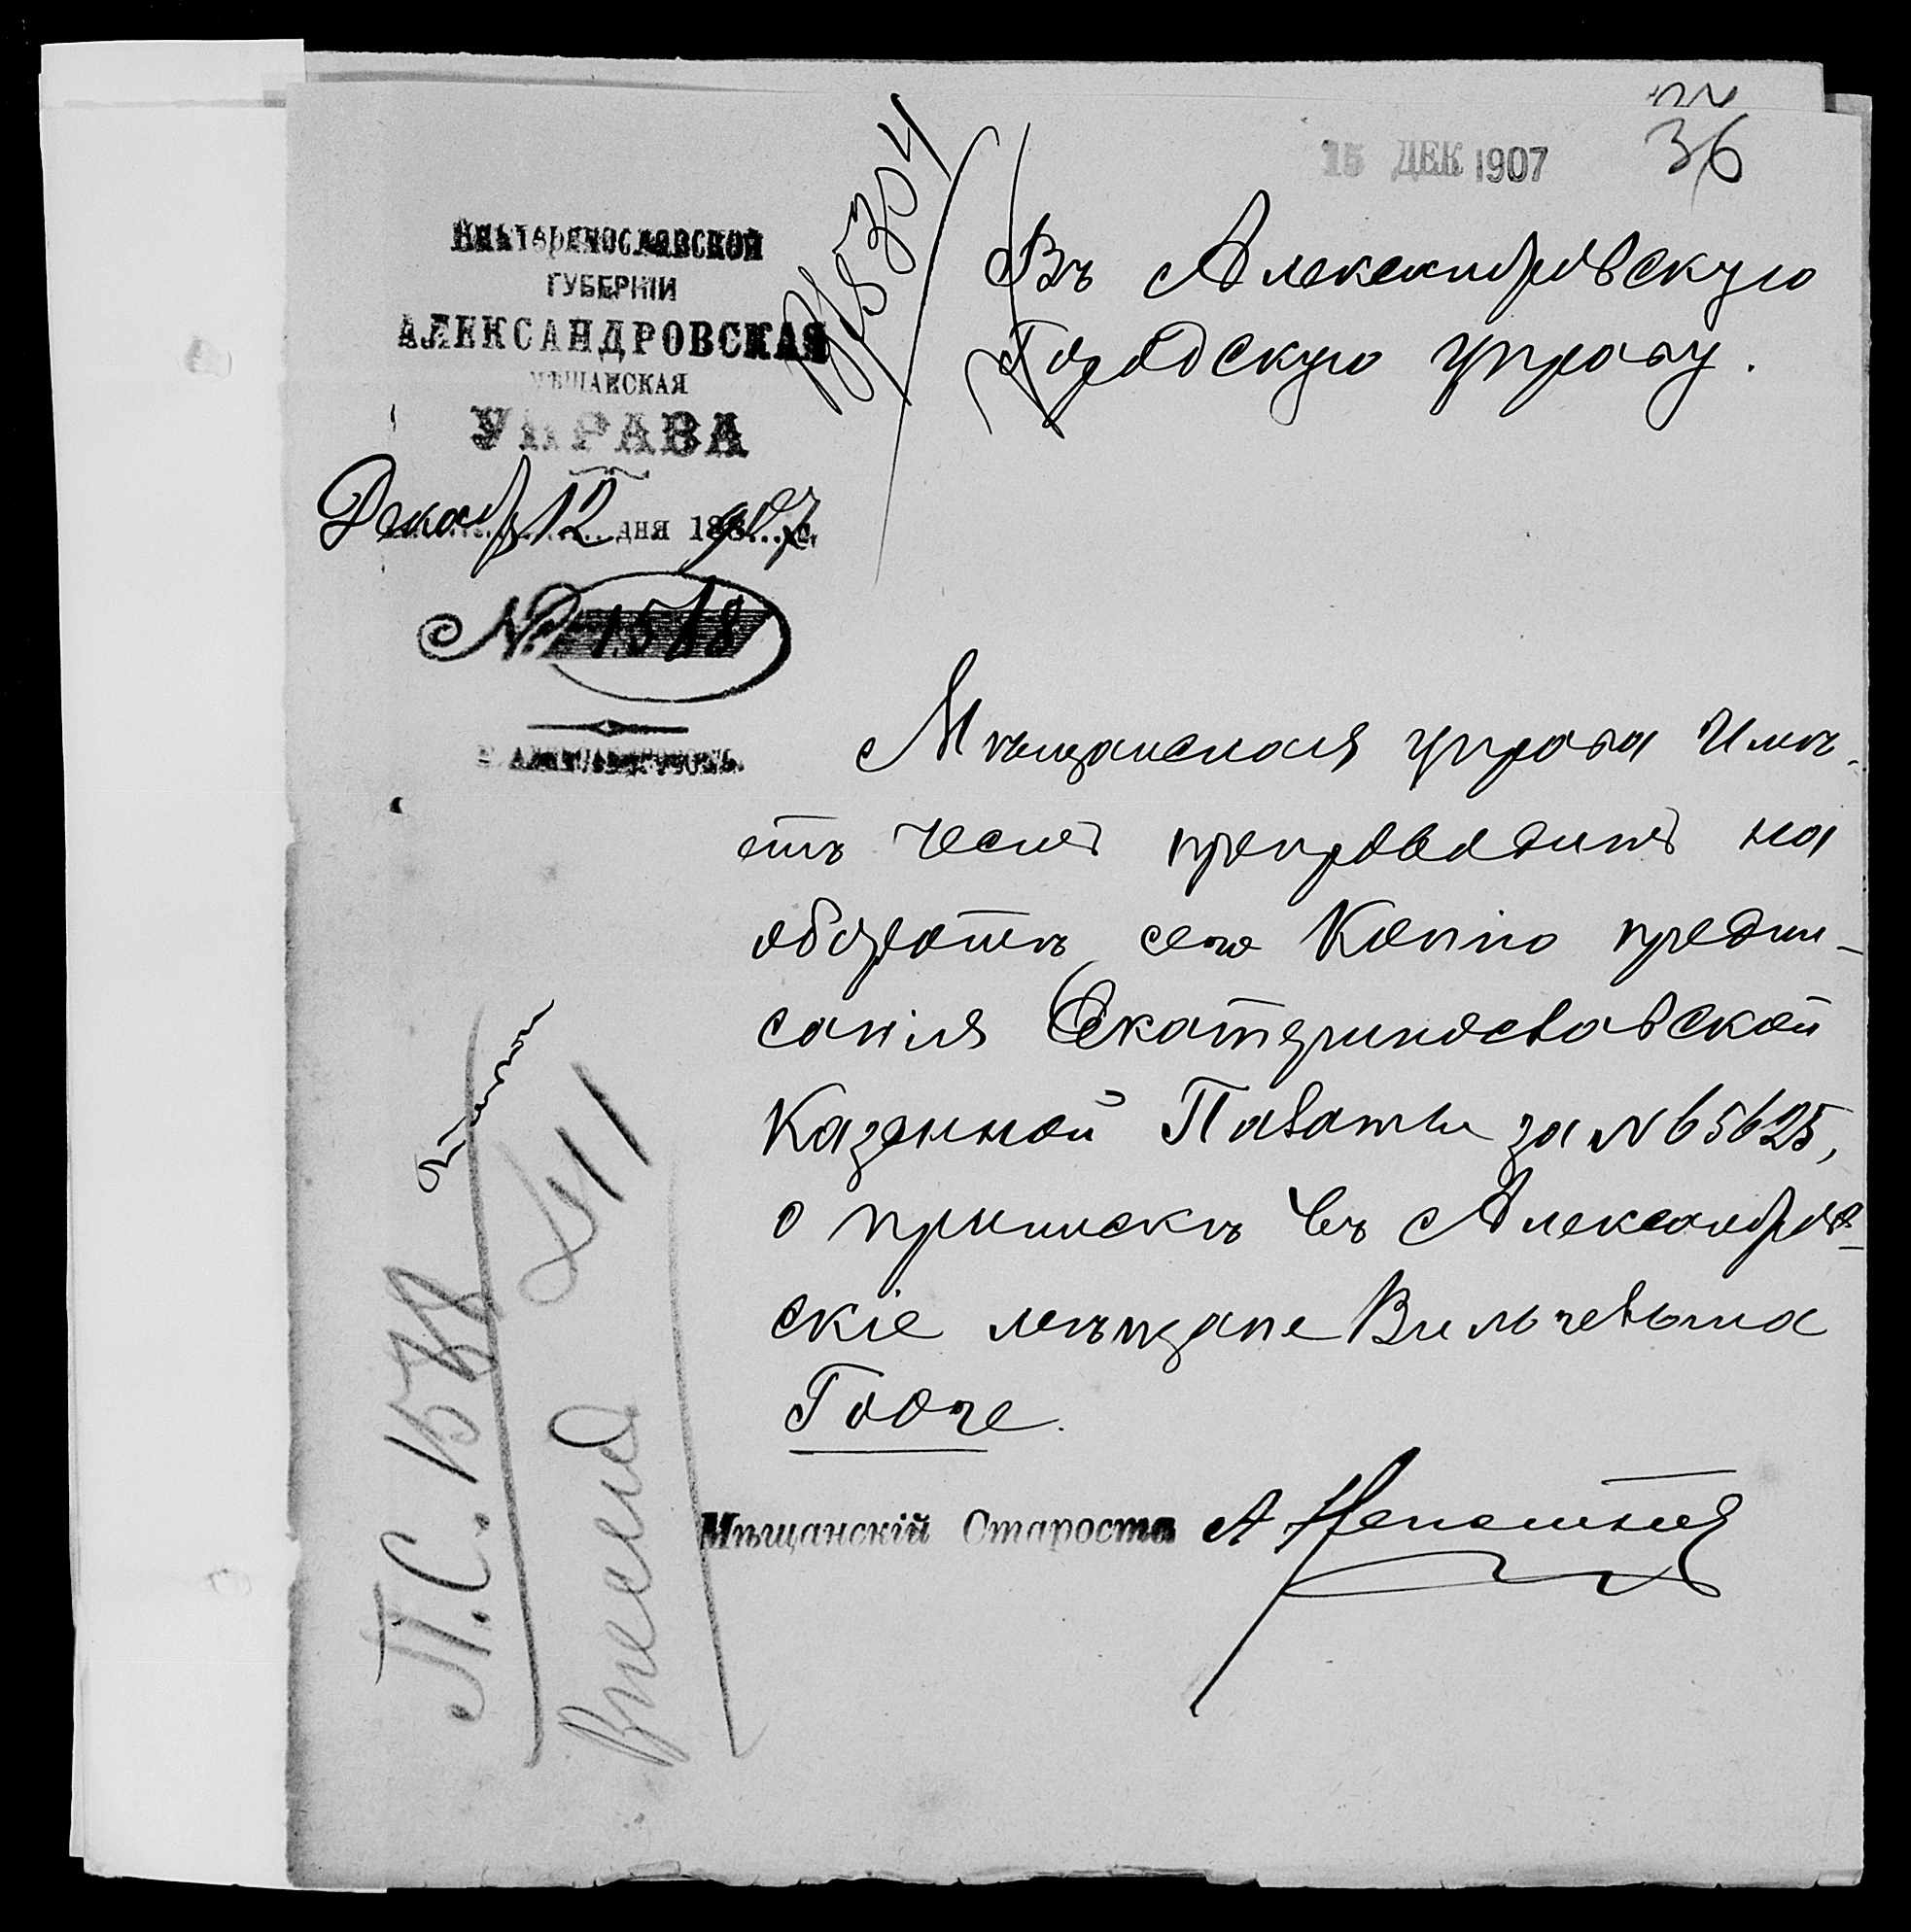 36
15 ДЕК 1907
ЕКАТЕРИНОСЛАВСКОЙ
ГУБЕРНІИ
АЛЕКСАНДРОВСКАЯ
МѢЩАНСКАЯ
УПРАВА
Декабр 12 дня 1907 г.
№ 1518
Въ Александровскую
Городскую управу.
Мѣщанская управа имѣ-
етъ честь препроводить на
оборотѣ сего Копію предпи-
санія Екатеринославской
Казенной Палаты за № 65625,
о припискѣ въ Александров-
скіе мѣщане Вильгельма
Гооге.
Мѣщанскій Староста А
П.С. 1578